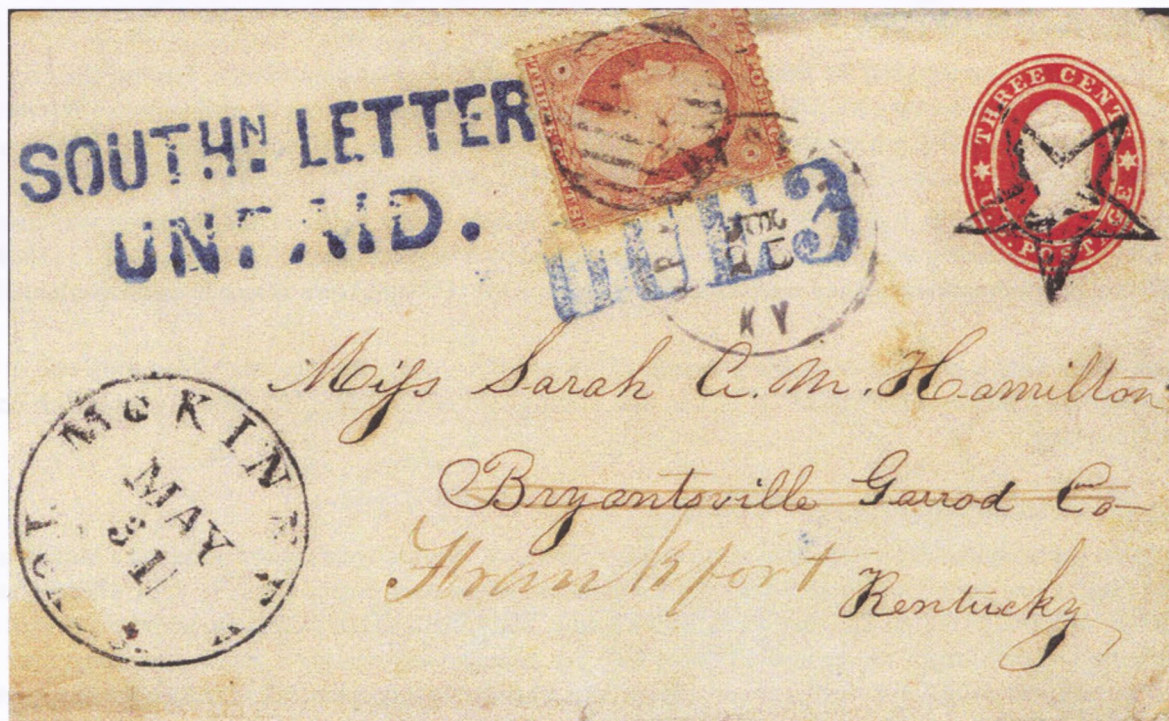 SOUTHN LETTER
UNPAID.
DUE 3
THREE CENTS
U.S. POSTAGE
KY
McKINNEY
MAY
31
Miſs Sarah A. M. Hamilton
Bryantsville Garrod Co
Frankfort
Kentucky